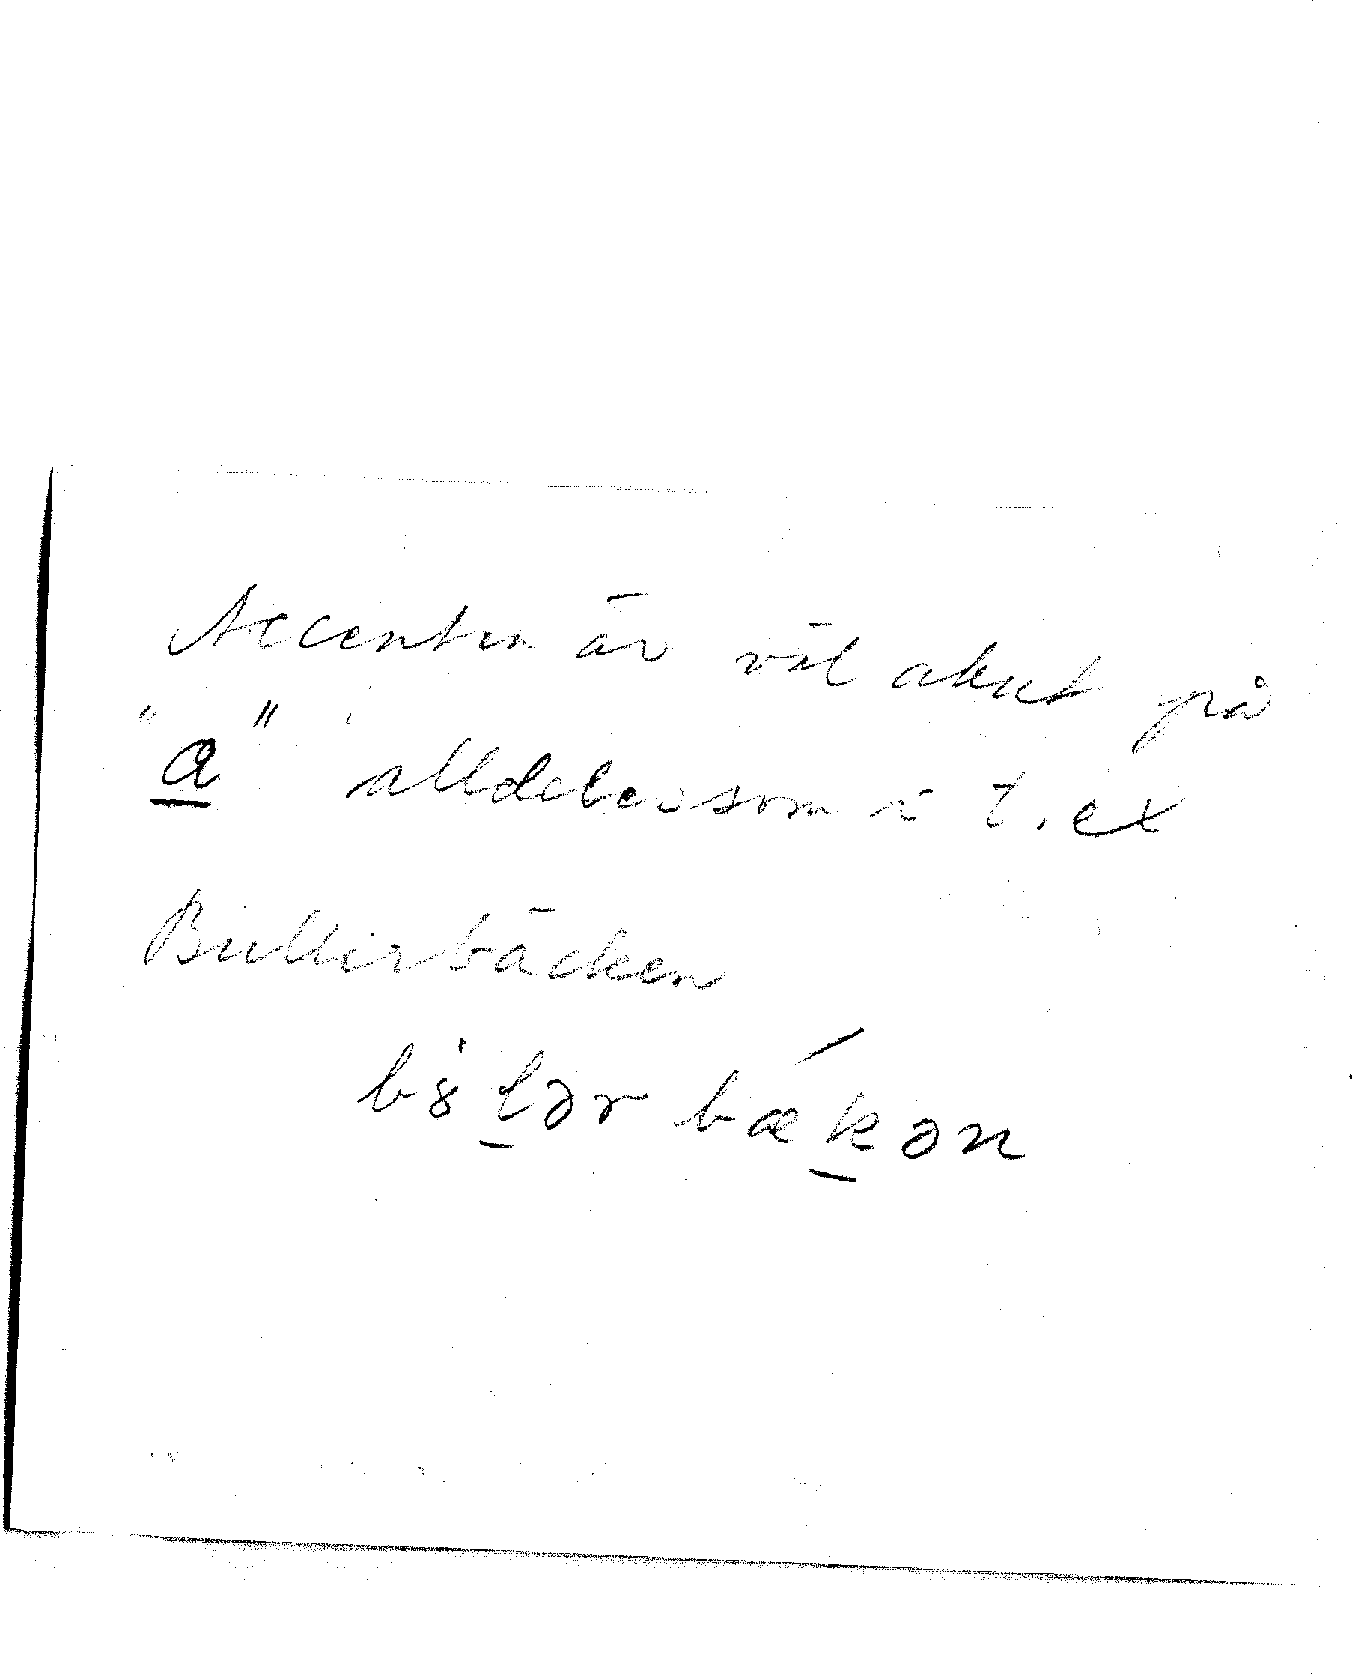 Accenten är väl akut på
"a" alldeles som i t.ex
Bullerbäcken
bȣ̀lər bǽkən